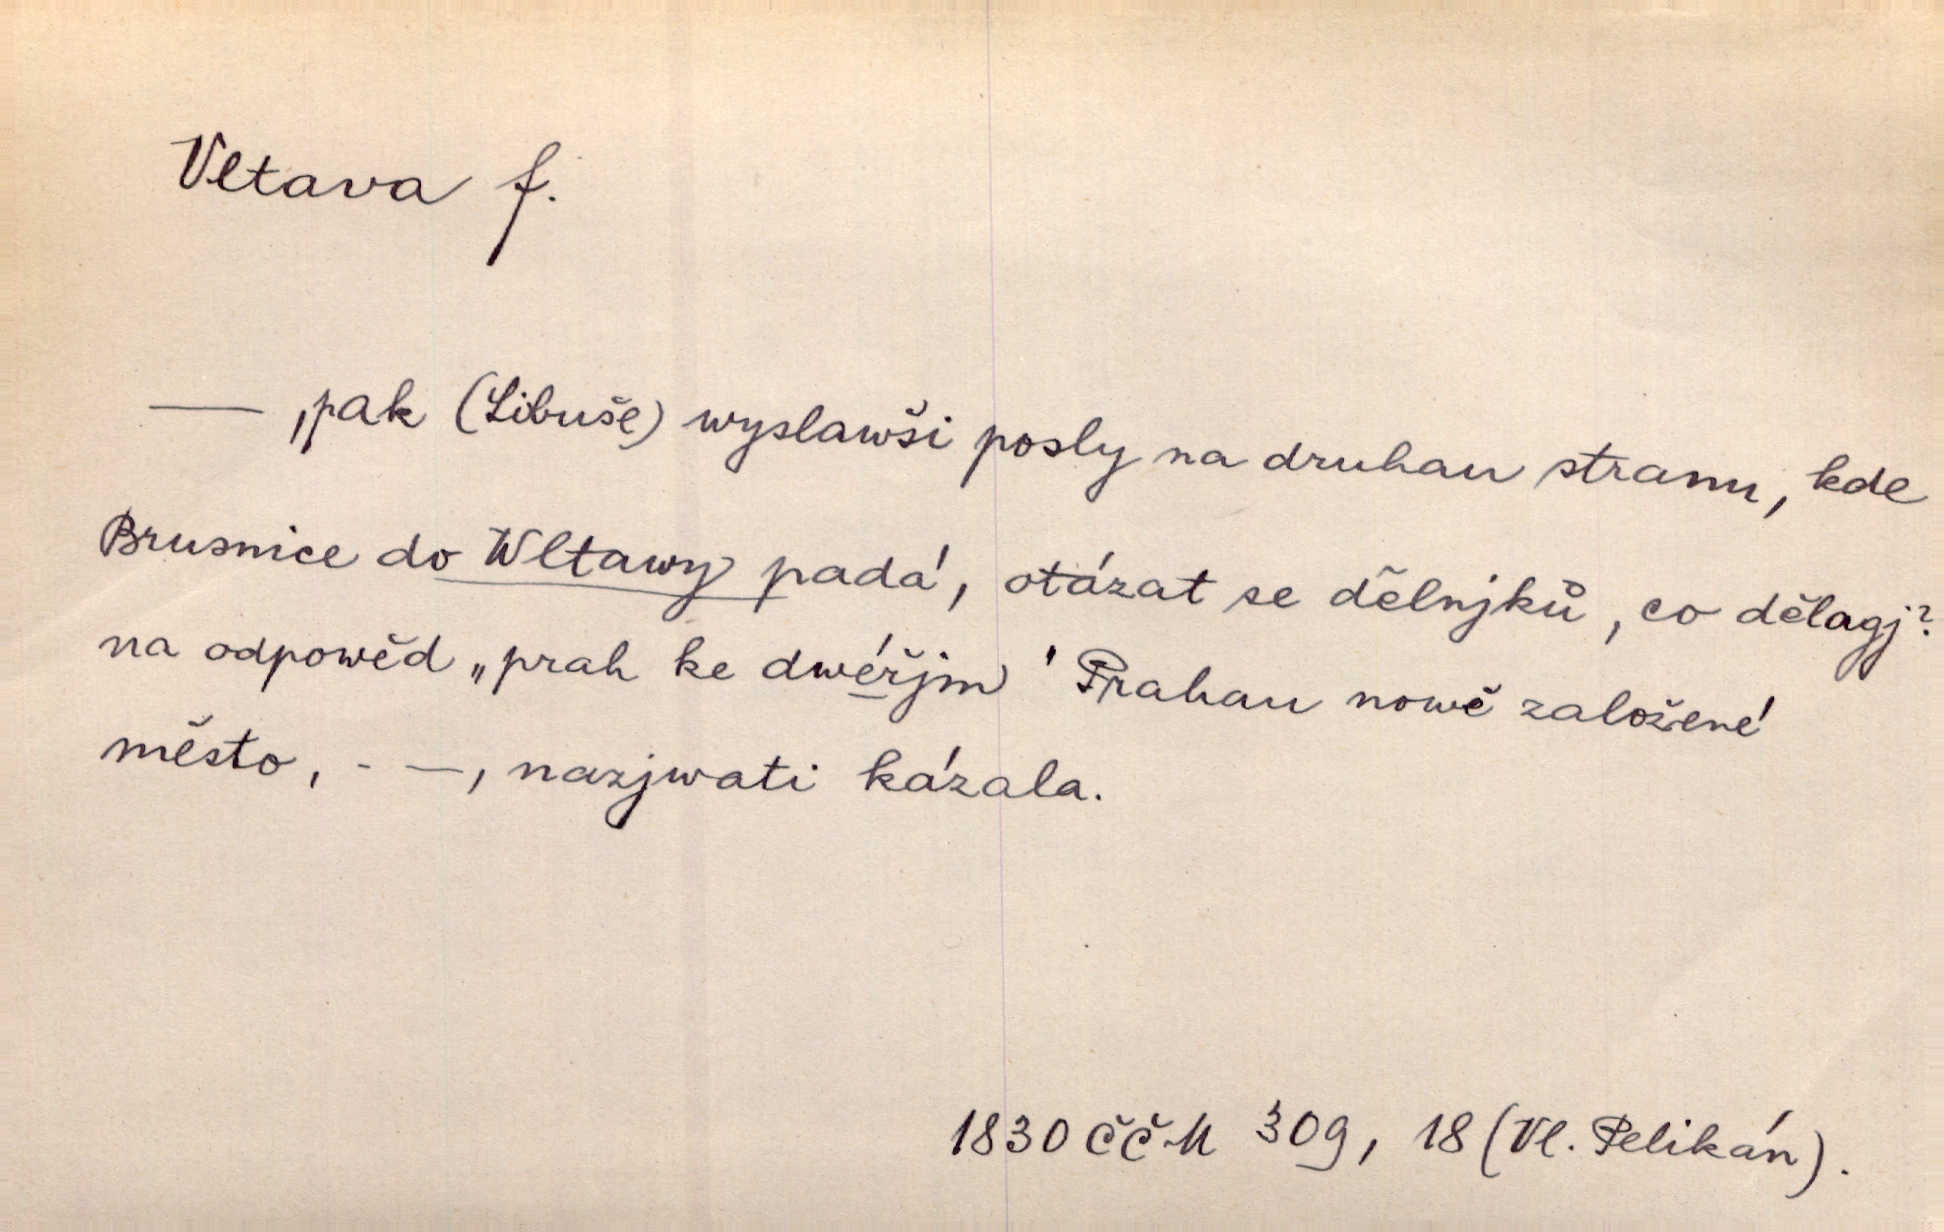 Vltava f.
—, pak (Libuše) wyslawši posly na druhau stranu, kde
Brusnice do Wltawy padá, otázat se dělnjků, co dělagj?
na odpowěd „prah ke dwéřjm' Prahau nowě založené
město, - —, nazjwati kázala.
1830 ČČM 309, 18 (Vl. Pelikán).